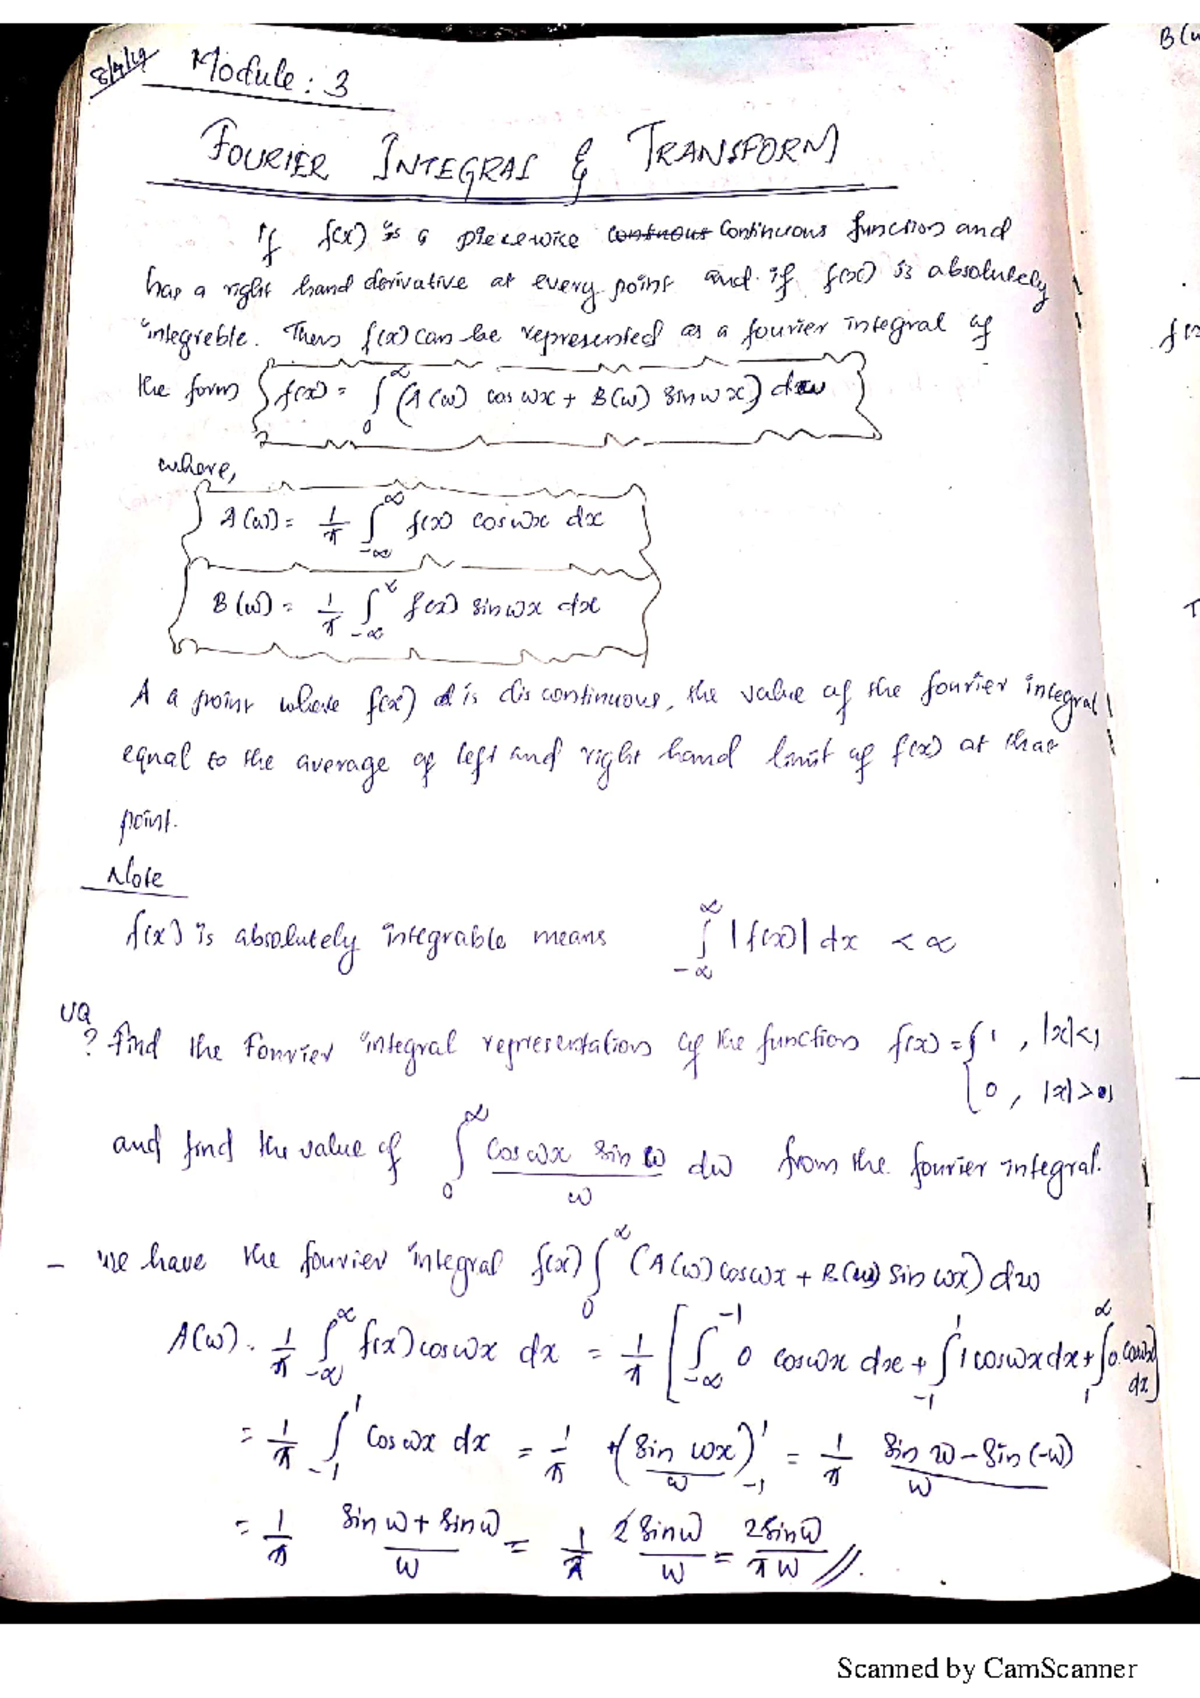 8/4/19 Module: 3
FOURIER INTEGRAL & TRANSFORM
If f(x) is a piecewise contnous continuous function and
has a right hand derivative at every point and if f(x) is absolutely
integreble. Then f(x) can be represented as a fourier integral of
the form f(x) = ∫₀^∞ (A(ω) cos ωx + B(ω) sin ωx) dω
where,
A(ω) = 1/π ∫_{-∞}^{∞} f(x) cos ωx dx
B(ω) = 1/π ∫_{-∞}^{∞} f(x) sin ωx dx
A a point where f(x) is discontinuous, the value of the fourier integral
equal to the average of left and right hand limit of f(x) at that
point.
Note
f(x) is absolutely integrable means ∫_{-∞}^{∞} |f(x)| dx < ∞
UQ
? Find the Fourier integral representation of the function f(x) = { 1 , |x|<1
0 , |x|>1
and find the value of ∫₀^∞ (cos ωx sin ω)/ω dω from the fourier integral.
- we have the fourier integral f(x) ∫₀^∞ (A(ω) cos ωx + B(ω) sin ωx) dω
A(ω) = 1/π ∫_{-∞}^{∞} f(x) cos ωx dx = 1/π [∫_{-∞}^{-1} 0 cos ωx dx + ∫_{-1}^{1} 1 cos ωx dx + ∫_{1}^{∞} 0. cos ωx dx]
= 1/π ∫_{-1}^{1} cos ωx dx = 1/π (sin ωx / ω)_{-1}^{1} = 1/π (sin ω - sin(-ω))/ω
= 1/π (sin ω + sin ω)/ω = 1/π 2 sin ω/ω = 2 sin ω/πω //.
Scanned by CamScanner